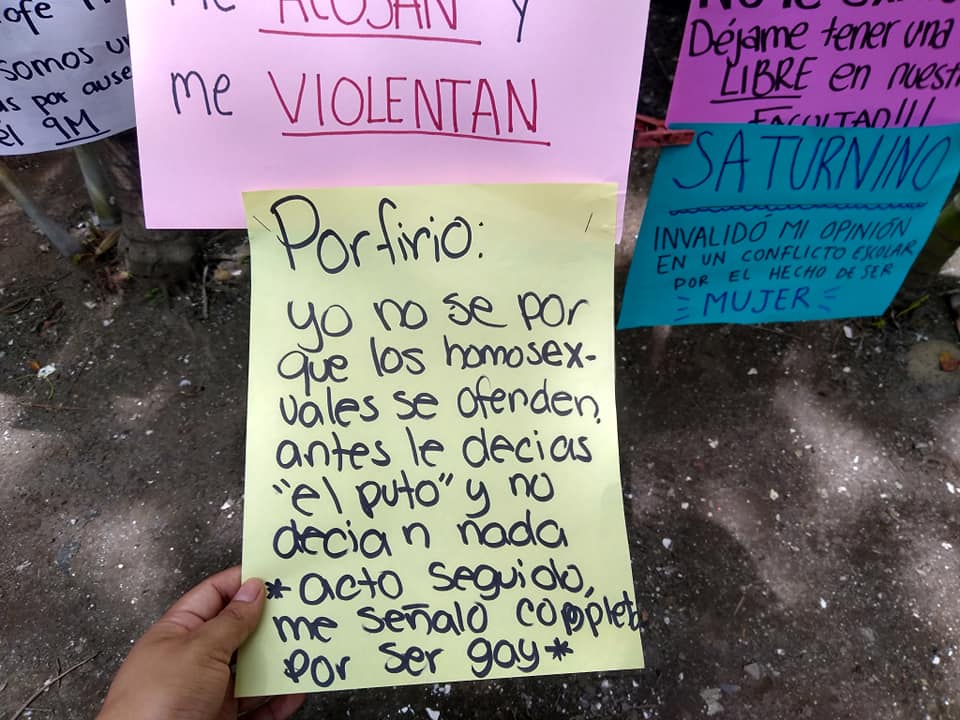 somos
por
el 9M
me ACOSAN y
me VIOLENTAN
Déjame tener una
LIBRE en
FACULTAD!!!
SATURNINO
INVALIDÓ MI OPINIÓN
EN UN CONFLICTO ESCOLAR
POR EL HECHO DE SER
MUJER
Porfirio:
yo no se por
que los homosex-
uales se ofenden,
antes le decias
"el puto" y no
decian nada
*acto seguido,
me señalo complet
por ser gay*